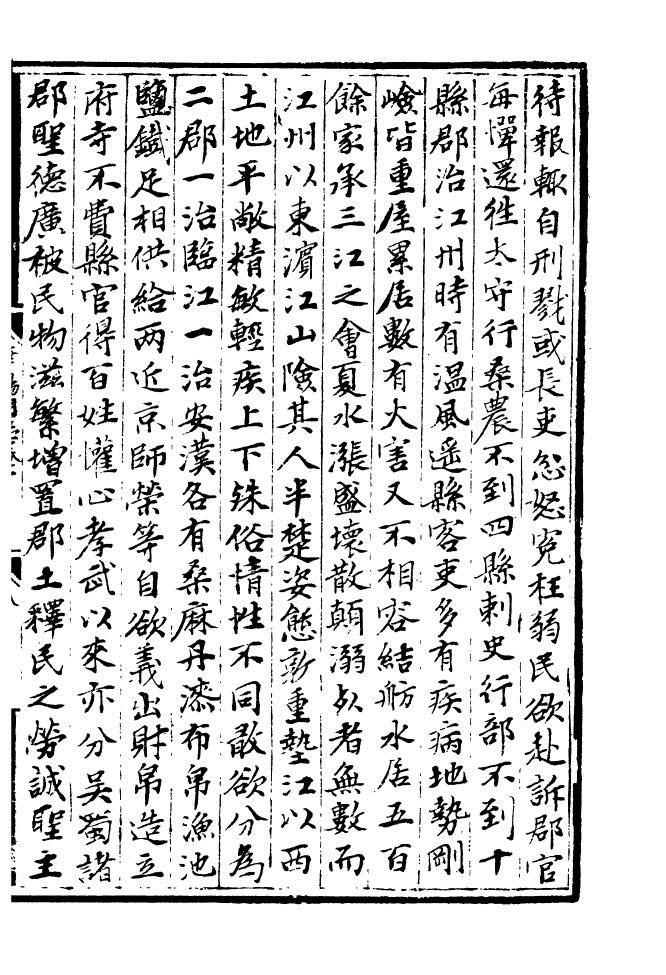 待報輙自刑戮或長吏忿怒冤枉弱民欲赴訴郡官
每憚還徃太守行桑農不到四縣刺史行部不到十
縣郡治江州時有温風遥縣客吏多有疾病地勢剛
嶮皆重屋累居數有火害又不相容結舫水居五百
餘家承三江之會夏水漲盛壊散顛溺死者無數而
江州以東濵江山險其人半楚姿態敦重墊江以西
土地平敞精敏輕疾上下殊俗情性不同敢欲分為
二郡一治臨江一治安漢各有桑麻丹漆布帛漁池
鹽鐵足相供給两近京師榮等自欲義出財帛造立
府寺不費縣官得百姓懽心孝武以來亦分吳蜀諸
郡聖德廣被民物滋繁增置郡土釋民之勞誠聖主